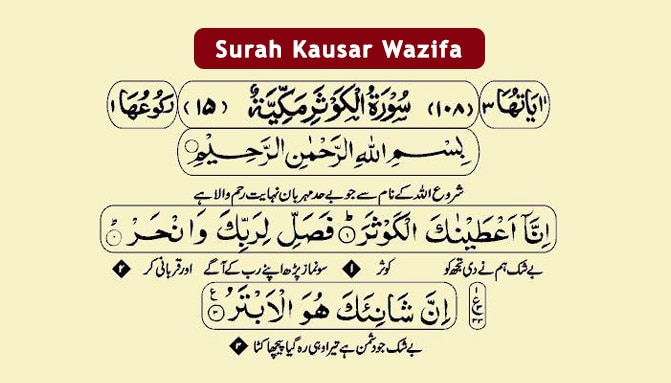 Surah Kausar Wazifa
اٰيَاتُهَا ٣ (١٠٨) سُوْرَةُ الْكَوْثَرِ مَكِّيَّةٌ (١٥) رُكُوْعُهَا ١
بِسْمِ اللّٰهِ الرَّحْمٰنِ الرَّحِيْمِ
شروع اللہ کے نام سے جو بے حد مہربان نہایت رحم والا ہے
اِنَّاۤ اَعْطَيْنٰكَ الْكَوْثَرَ ؕ ١ فَصَلِّ لِرَبِّكَ وَانْحَرْ ؕ
بے شک ہم نے دی تجھ کو کوثر ١ سو نماز پڑھ اپنے رب کے آگے اور قربانی کر ٢
اِنَّ شَانِئَكَ هُوَ الْاَبْتَرُ ٣ ع
بے شک جو دشمن ہے تیرا وہی رہ گیا پیچھا کٹا ٣